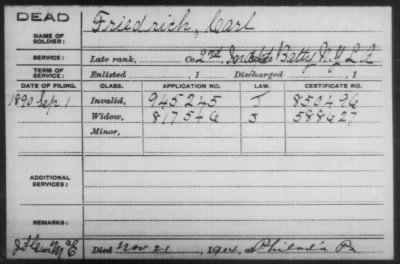 DEAD
Friedrich, Carl
NAME OF SOLDIER:
SERVICE: Late rank, Co. 2nd Batty N.Y. L A
TERM OF SERVICE: Enlisted , 1 Discharged , 1
DATE OF FILING. CLASS. APPLICATION NO. LAW. CERTIFICATE NO.
1890 Sep 1 Invalid, 945245 J 850496
Widow, 817546 J 588627
Minor,
ADDITIONAL SERVICES:
REMARKS:
Died Nov 21, 1904, at Philad'a Pa